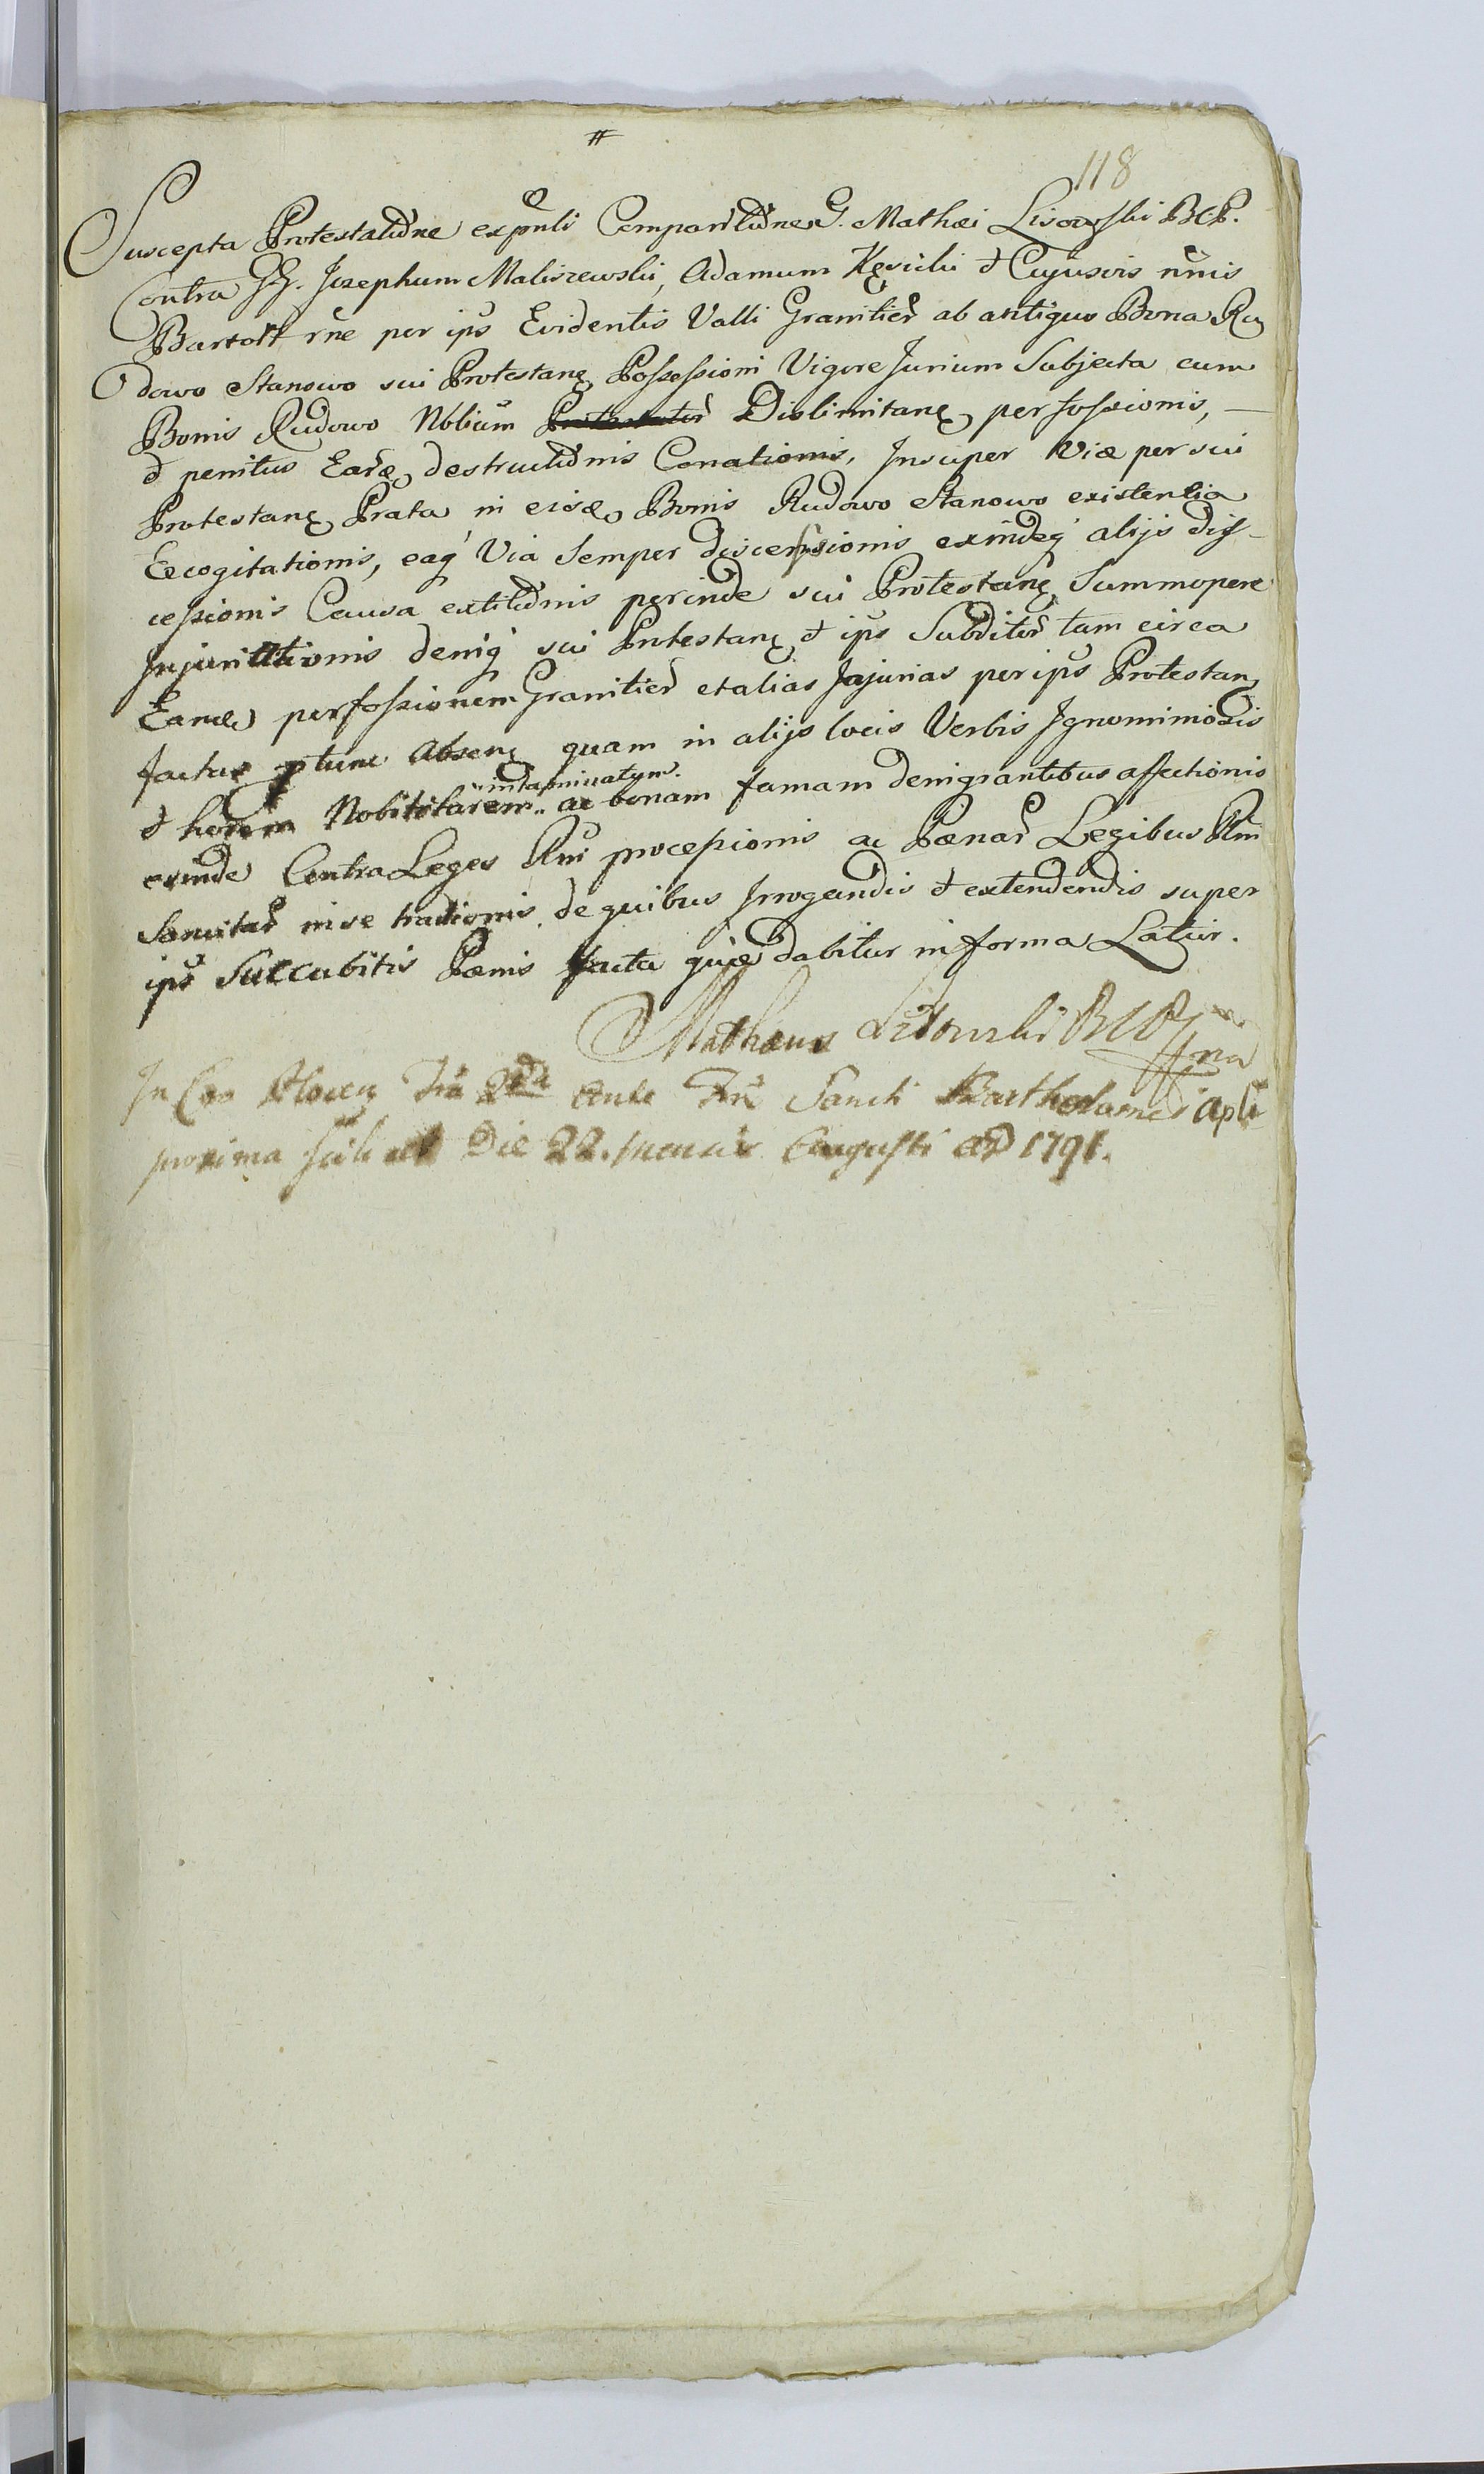 118
Suscepta Protestatione expnti Comparitione G. Mathæi Lisowski BCP.
Contra GG. Josephum Maliszewski, Adamum Kęsicki et Cujusvis nnis
Bartolt rne per ips Evidentis Valli Granitier ab antiquo Bona Ru
dowo Stanowo sui Protestanę Possessioni Vigore Jurium Subjecta cum
Bonis Rudowo Nobium Dislimitanę perfossionis,
et penitus Earæ destructionis Conationis, Insuper Viæ per sui
Protestanę Prata in eisdę Bonis Rudowo Stanowo existentia
Excogitationis, eaq Via Semper discenssionis exindeq alijs diss-
cessionis Causa extitionis perinde sui Protestanę Summopere
Injuriationis deniq sui Protestanę et ips Subditor tam circa
Eandę perfossionem Granitier et alias Injurias per ips Protestanę
factas ptunc Absenę quam in alijs locis Verbis Ignominiosis
intaminatum
et horem Nobilitarem ac bonam famam denigrantibus affectionis
exinde Contra Leges Rni processionis ac Pænar Legibus Rni
Sancitar in se traditionis, de quibus Irrogandis et extendendis super
ips Succubitis Pænis facta quæ dabitur in forma Latiir.
Mathæus Lisowski BCP mpa
In Cao Plocen Fria 2da Ante Ftu Sancti Bartholomei Apli
proxima scilicet Die 22. mensis Augusti AD 1791.